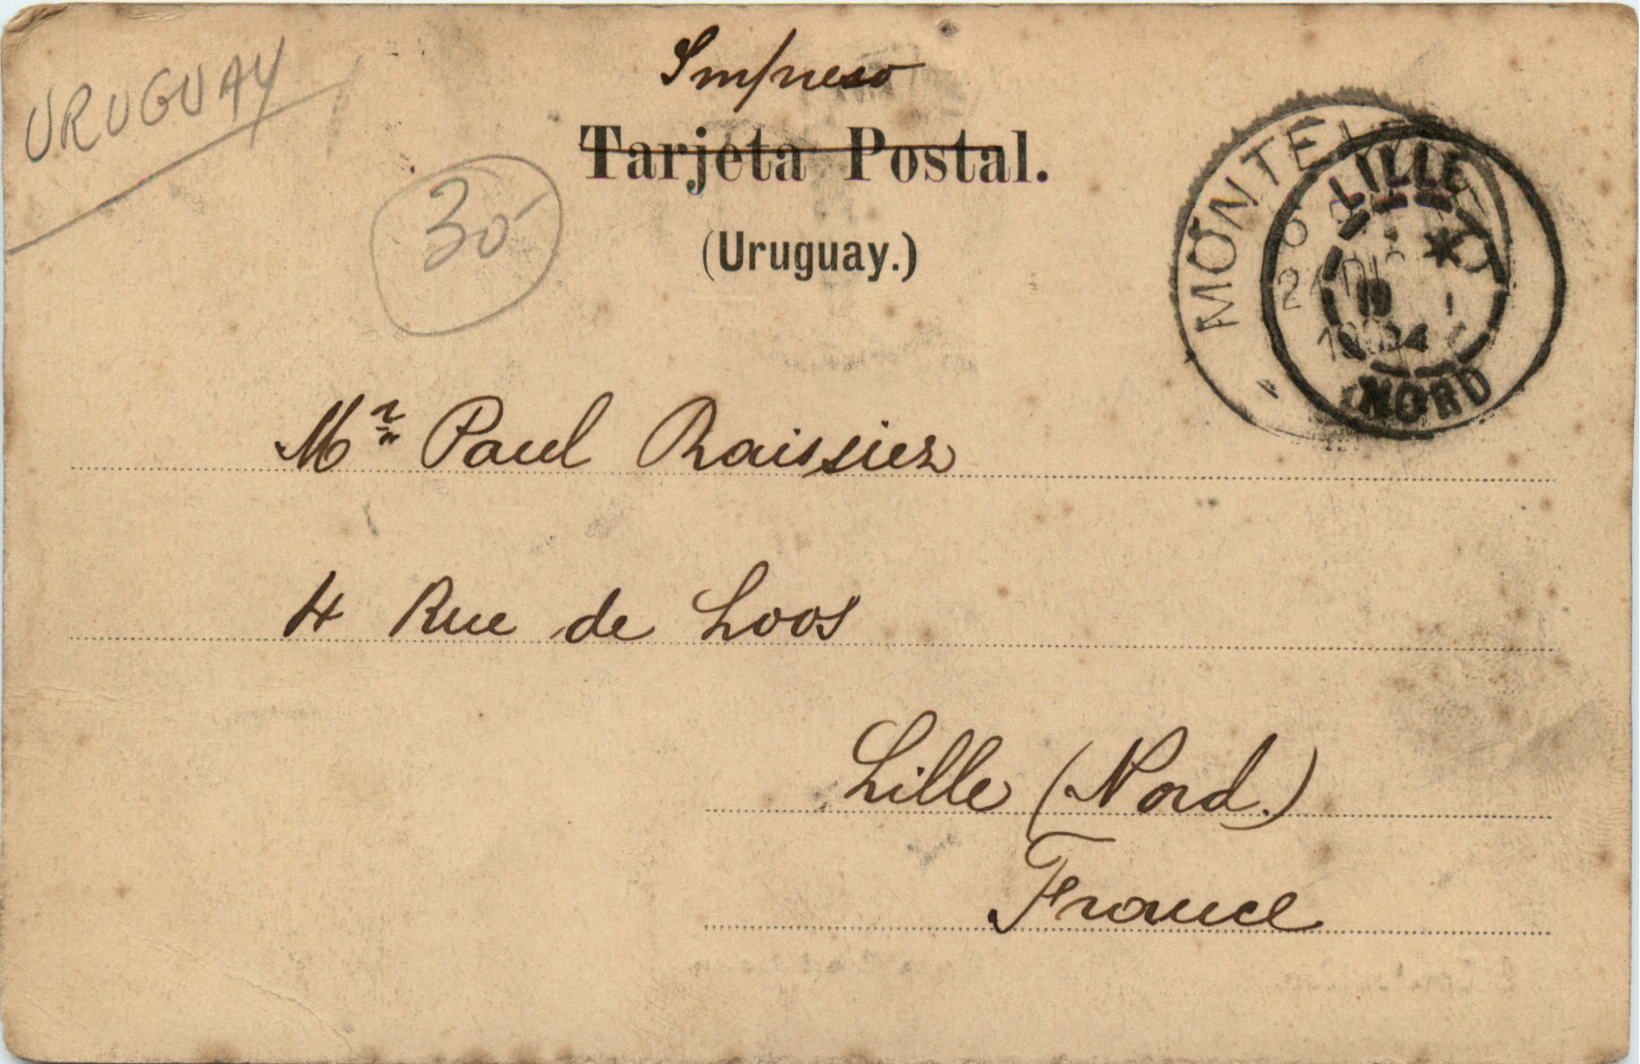 URUGUAY
Impreso
Tarjeta Postal.
30
(Uruguay.)
MONTEVIDEO
LILLE
19
NORD
Mr Paul Raissier
4 Rue de Loos
Lille (Nord.)
France